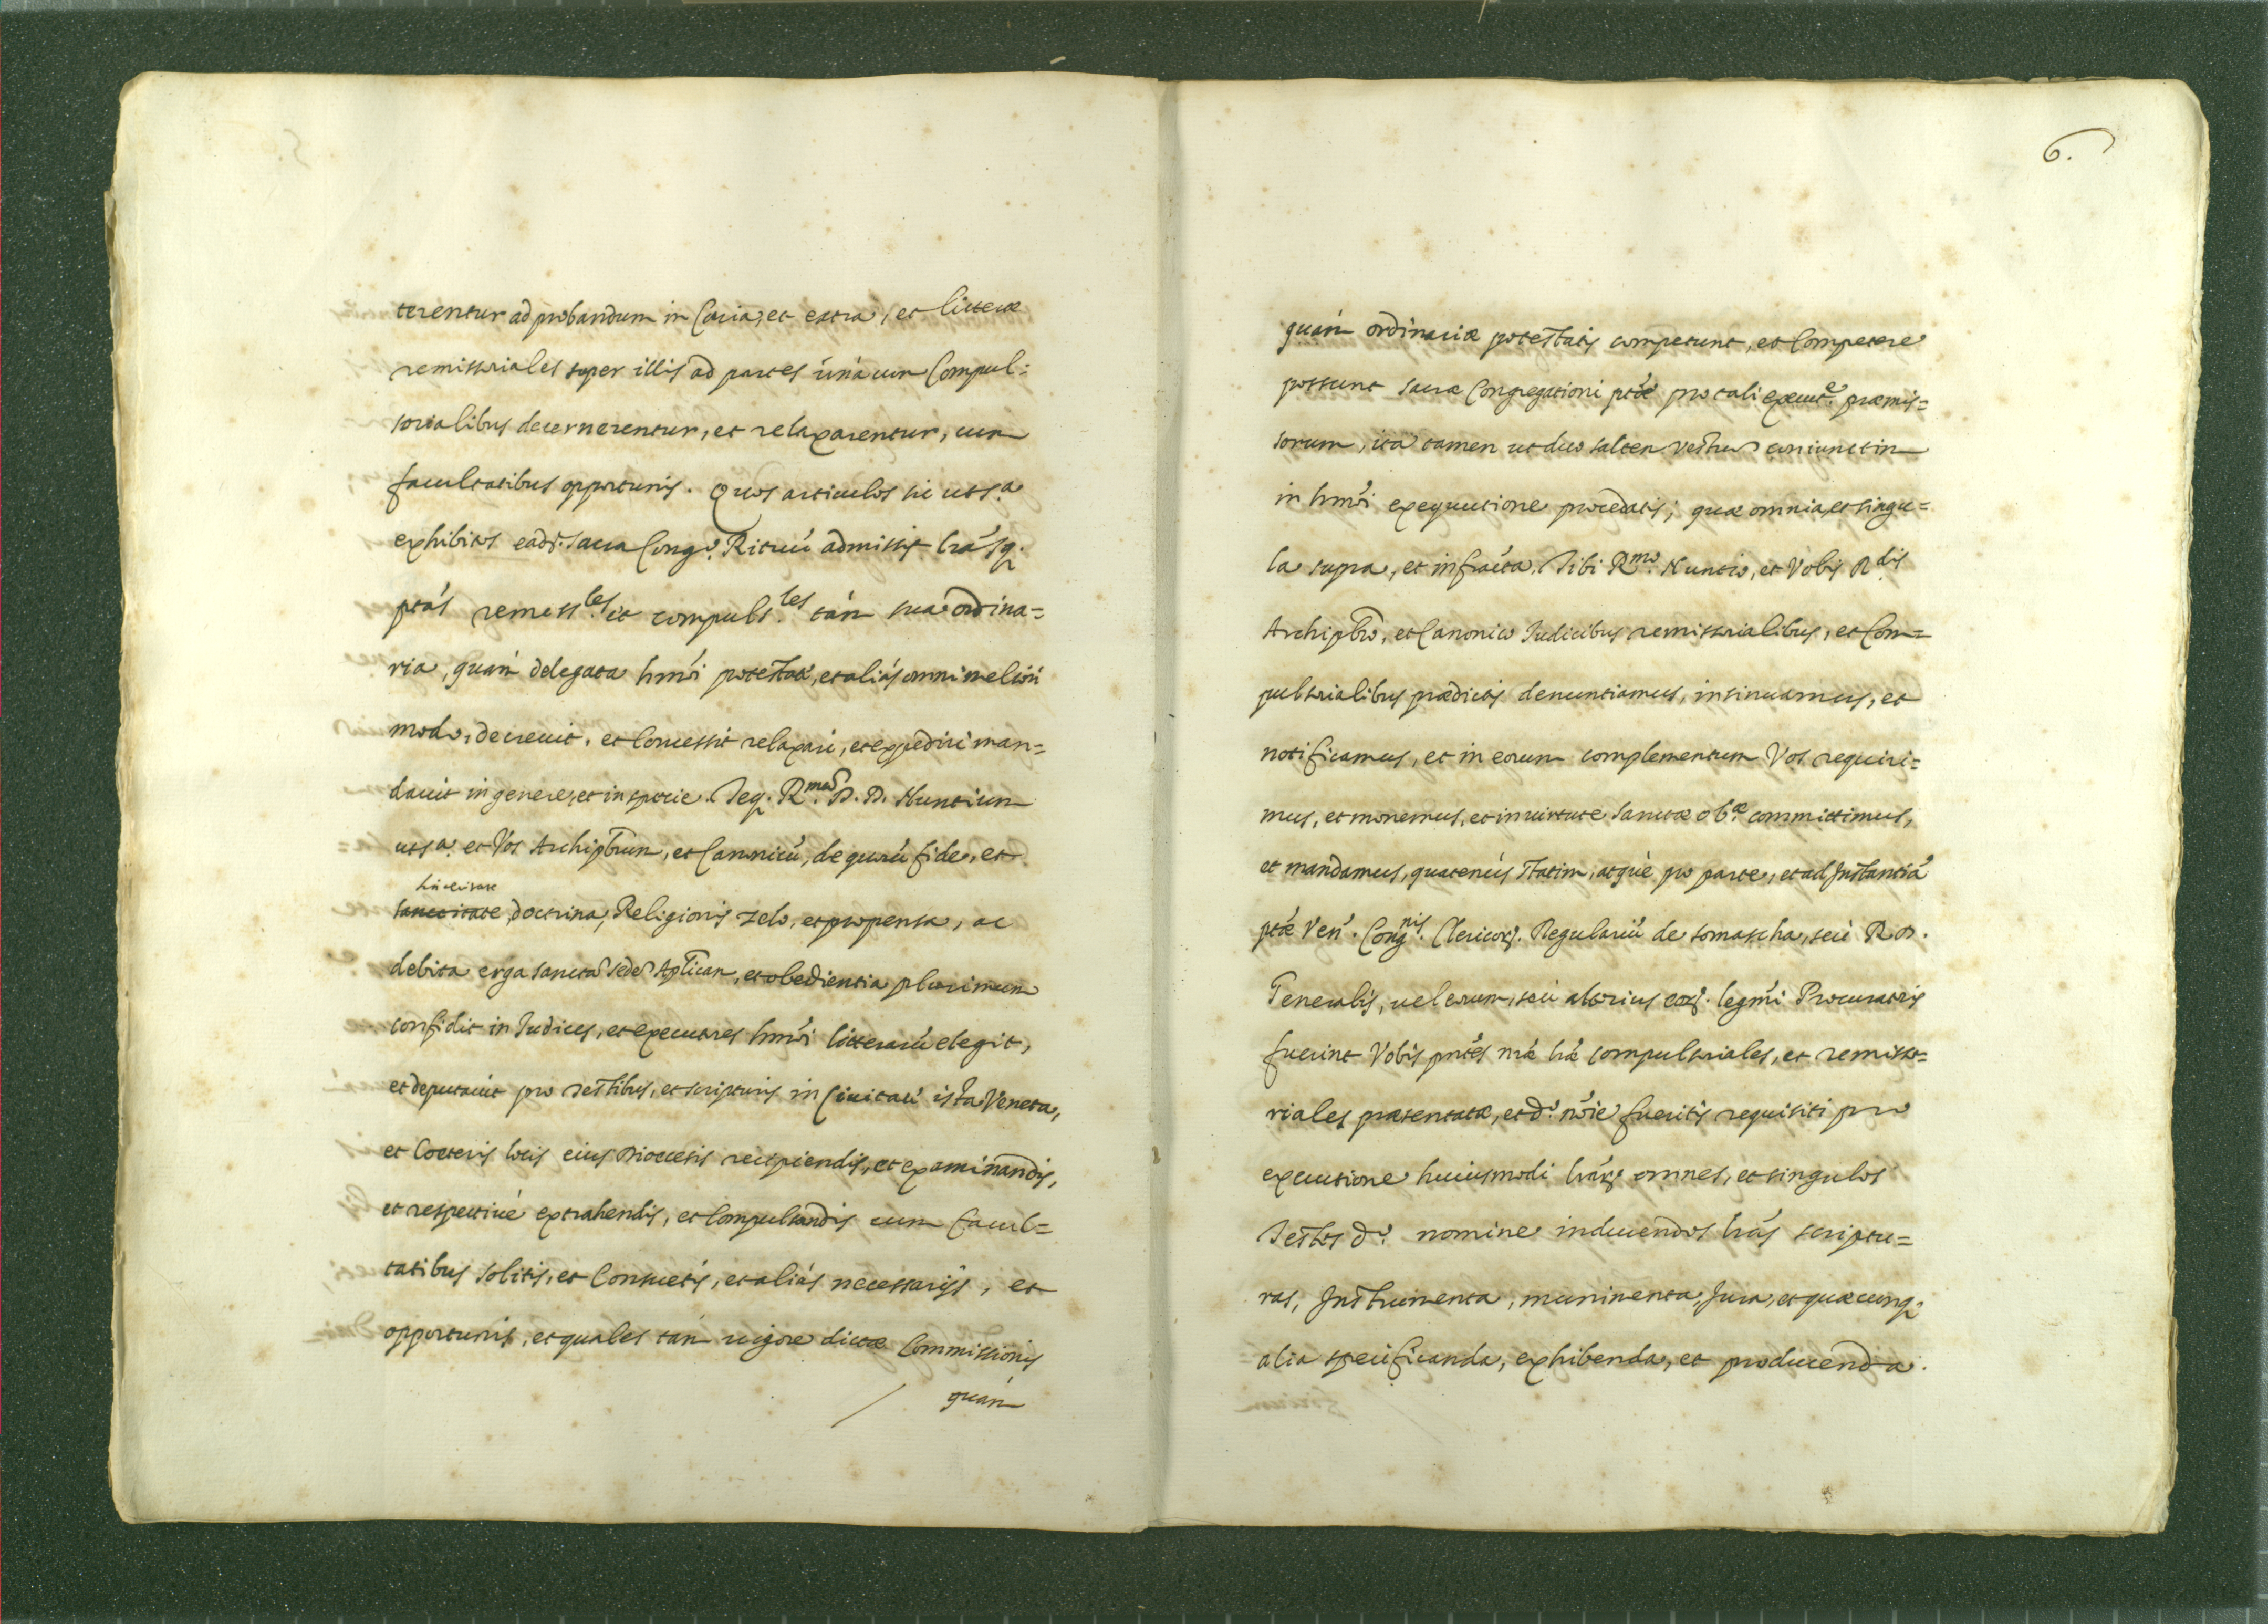 terentur ad probandum in Curia, et extra, et litteræ
remissoriales super illis ad partes unà cum Compul=
sorialibus decernerentur, et relaxarentur, cum
facultatibus opportunis. Quos articulos sic ut s.ª
exhibitos ead.ᵐ sacra Cong.º Rituū admissit, lrás q.
ptás remiss.les et compuls.les tám sua ordina=
ria, quám delegata hmói potestate, et aliás omni meliori
modo, decrevit, et Concessit relaxari, et expediri man=
davit in genere, et in specie. Teq. R.mum D. D. Nuntium
ut s.ª et Vos Archipbrum, et Canonicū, de quorū fide, et
sinceritate
sanctitate, doctrina, Religionis zelo, et propensa, ac
debita erga sanctā sedē Aplicam, et obedientia plurimum
confidit in Judices, et executores hmói litterarū elegit,
et deputavit pro testibus, et scripturis in Civitate ista Veneta,
et Cœteris locis eius Diocesis recipiendis, et examinandis,
et respectivé extrahendis, et Compulsandis cum facul=
tatibus solitis, et Consuetis, et aliás necessarijs, et
opportunis, et quales tám vigore dictæ Commissionis
quám
6.
quám ordinariæ potestatis competunt, et Competere
possunt sacræ Congregationi ptæ pro tali execut.e præmis=
sorum, ita tamen ut duo saltem Vestrum coniunctim
in hmói exequutione procedatis; quæ omnia, et singu=
la supra, et infrácta, Tibi R.mo Nuntio, et Vobis R.dis
Archipbro, et Canonico Judicibus remissorialibus, et Com=
pulsorialibus prædictis denuntiamus, insinuamus, et
notificamus, et in eorum complementum Vos requiri=
mus, et monemus, et in virtute Sanctæ ob.æ committimus,
et mandamus, quatenús statim, atqué pro parte, et ad Instantiā
ptæ Ven. Cong.nis Clericor. Regulariū de somascha, seú R. D.
Generalis, vel eorum, seú alterius eor. legmi Procuratoris
fuerint Vobis pntés nræ lræ compulsoriales, et remisso=
riales præsentatæ, et d.º nóie fueritis requisiti pro
executione huiusmodi lrár. omnes, et singulos
Testes d.º nomine inducendos lrás scriptu=
ras, Instrumenta, munimenta, Jura, et quæcumq;
alia specificanda, exhibenda, et producenda.